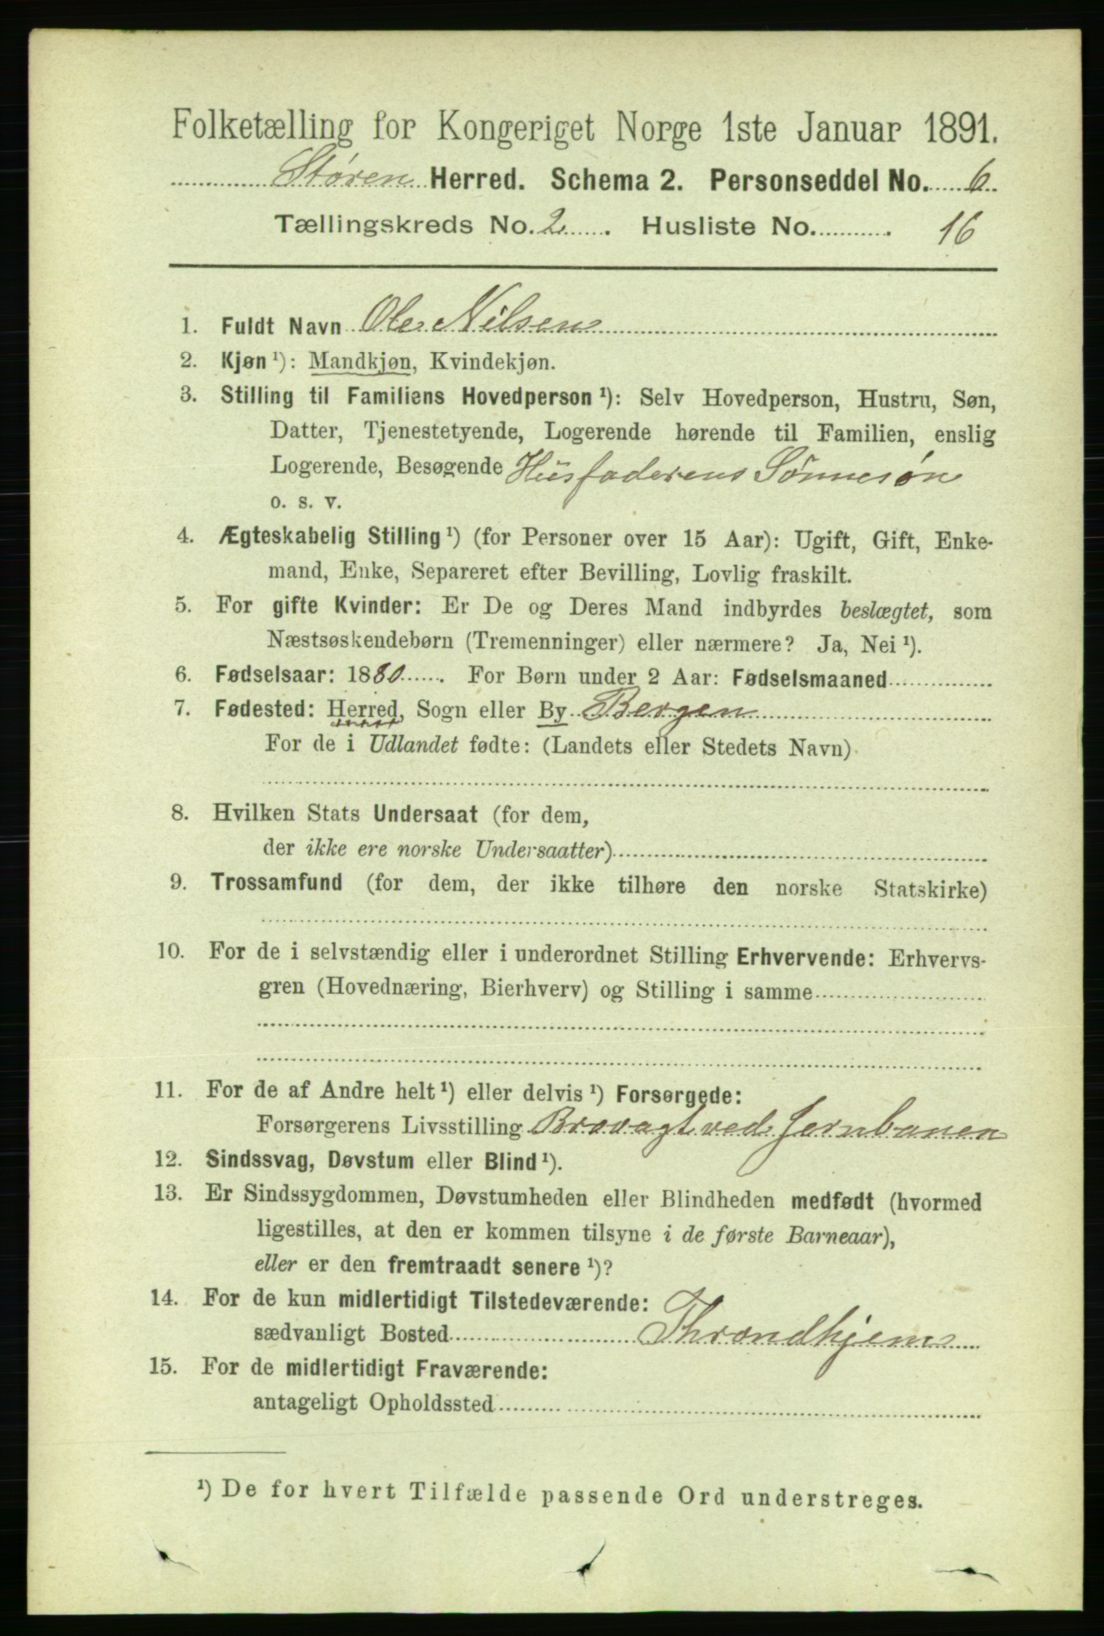 Folketælling for Kongeriget Norge 1ste Januar 1891.
Støren Herred. Schema 2. Personseddel No. 6.
Tællingskreds No. 2. Husliste No. 16
1. Fuldt Navn Ole Nilsen
2. Kjøn ¹): Mandkjøn, Kvindekjøn.
3. Stilling til Familiens Hovedperson ¹): Selv Hovedperson, Hustru, Søn,
Datter, Tjenestetyende, Logerende hørende til Familien, enslig
Logerende, Besøgende Husfaderens Sønnesøn
o. s. v.
4. Ægteskabelig Stilling ¹) (for Personer over 15 Aar): Ugift, Gift, Enke-
mand, Enke, Separeret efter Bevilling, Lovlig fraskilt.
5. For gifte Kvinder: Er De og Deres Mand indbyrdes beslægtet, som
Næstsøskendebørn (Tremenninger) eller nærmere? Ja, Nei ¹).
6. Fødselsaar: 1880. For Børn under 2 Aar: Fødselsmaaned
7. Fødested: Herred, Sogn eller By Bergen
For de i Udlandet fødte: (Landets eller Stedets Navn)
8. Hvilken Stats Undersaat (for dem,
der ikke ere norske Undersaatter)
9. Trossamfund (for dem, der ikke tilhøre den norske Statskirke)
10. For de i selvstændig eller i underordnet Stilling Erhvervende: Erhvervs-
gren (Hovednæring, Bierhverv) og Stilling i samme
11. For de af Andre helt ¹) eller delvis ¹) Forsørgede:
Forsørgerens Livsstilling Brovagt ved Jernbanen
12. Sindssvag, Døvstum eller Blind ¹).
13. Er Sindssygdommen, Døvstumheden eller Blindheden medfødt (hvormed
ligestilles, at den er kommen tilsyne i de første Barneaar),
eller er den fremtraadt senere ¹)?
14. For de kun midlertidigt Tilstedeværende:
sædvanligt Bosted Throndhjem
15. For de midlertidigt Fraværende:
antageligt Opholdssted
¹) De for hvert Tilfælde passende Ord understreges.